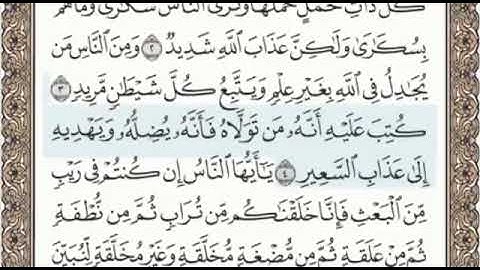 كُلُّ ذَاتِ حَمْلٍ حَمْلَهَا وَتَرَى النَّاسَ سُكَٰرَىٰ وَمَا هُم
بِسُكَٰرَىٰ وَلَٰكِنَّ عَذَابَ اللَّهِ شَدِيدٌ ٢ وَمِنَ النَّاسِ مَن
يُجَٰدِلُ فِي اللَّهِ بِغَيْرِ عِلْمٍ وَيَتَّبِعُ كُلَّ شَيْطَٰنٍ مَّرِيدٍ ٣
كُتِبَ عَلَيْهِ أَنَّهُۥ مَن تَوَلَّاهُ فَأَنَّهُۥ يُضِلُّهُۥ وَيَهْدِيهِ
إِلَىٰ عَذَابِ السَّعِيرِ ٤ يَٰٓأَيُّهَا النَّاسُ إِن كُنتُمْ فِي رَيْبٍ
مِّنَ الْبَعْثِ فَإِنَّا خَلَقْنَٰكُم مِّن تُرَابٍ ثُمَّ مِن نُّطْفَةٍ
ثُمَّ مِنْ عَلَقَةٍ ثُمَّ مِن مُّضْغَةٍ مُّخَلَّقَةٍ وَغَيْرِ مُخَلَّقَةٍ لِّنُبَيِّنَ